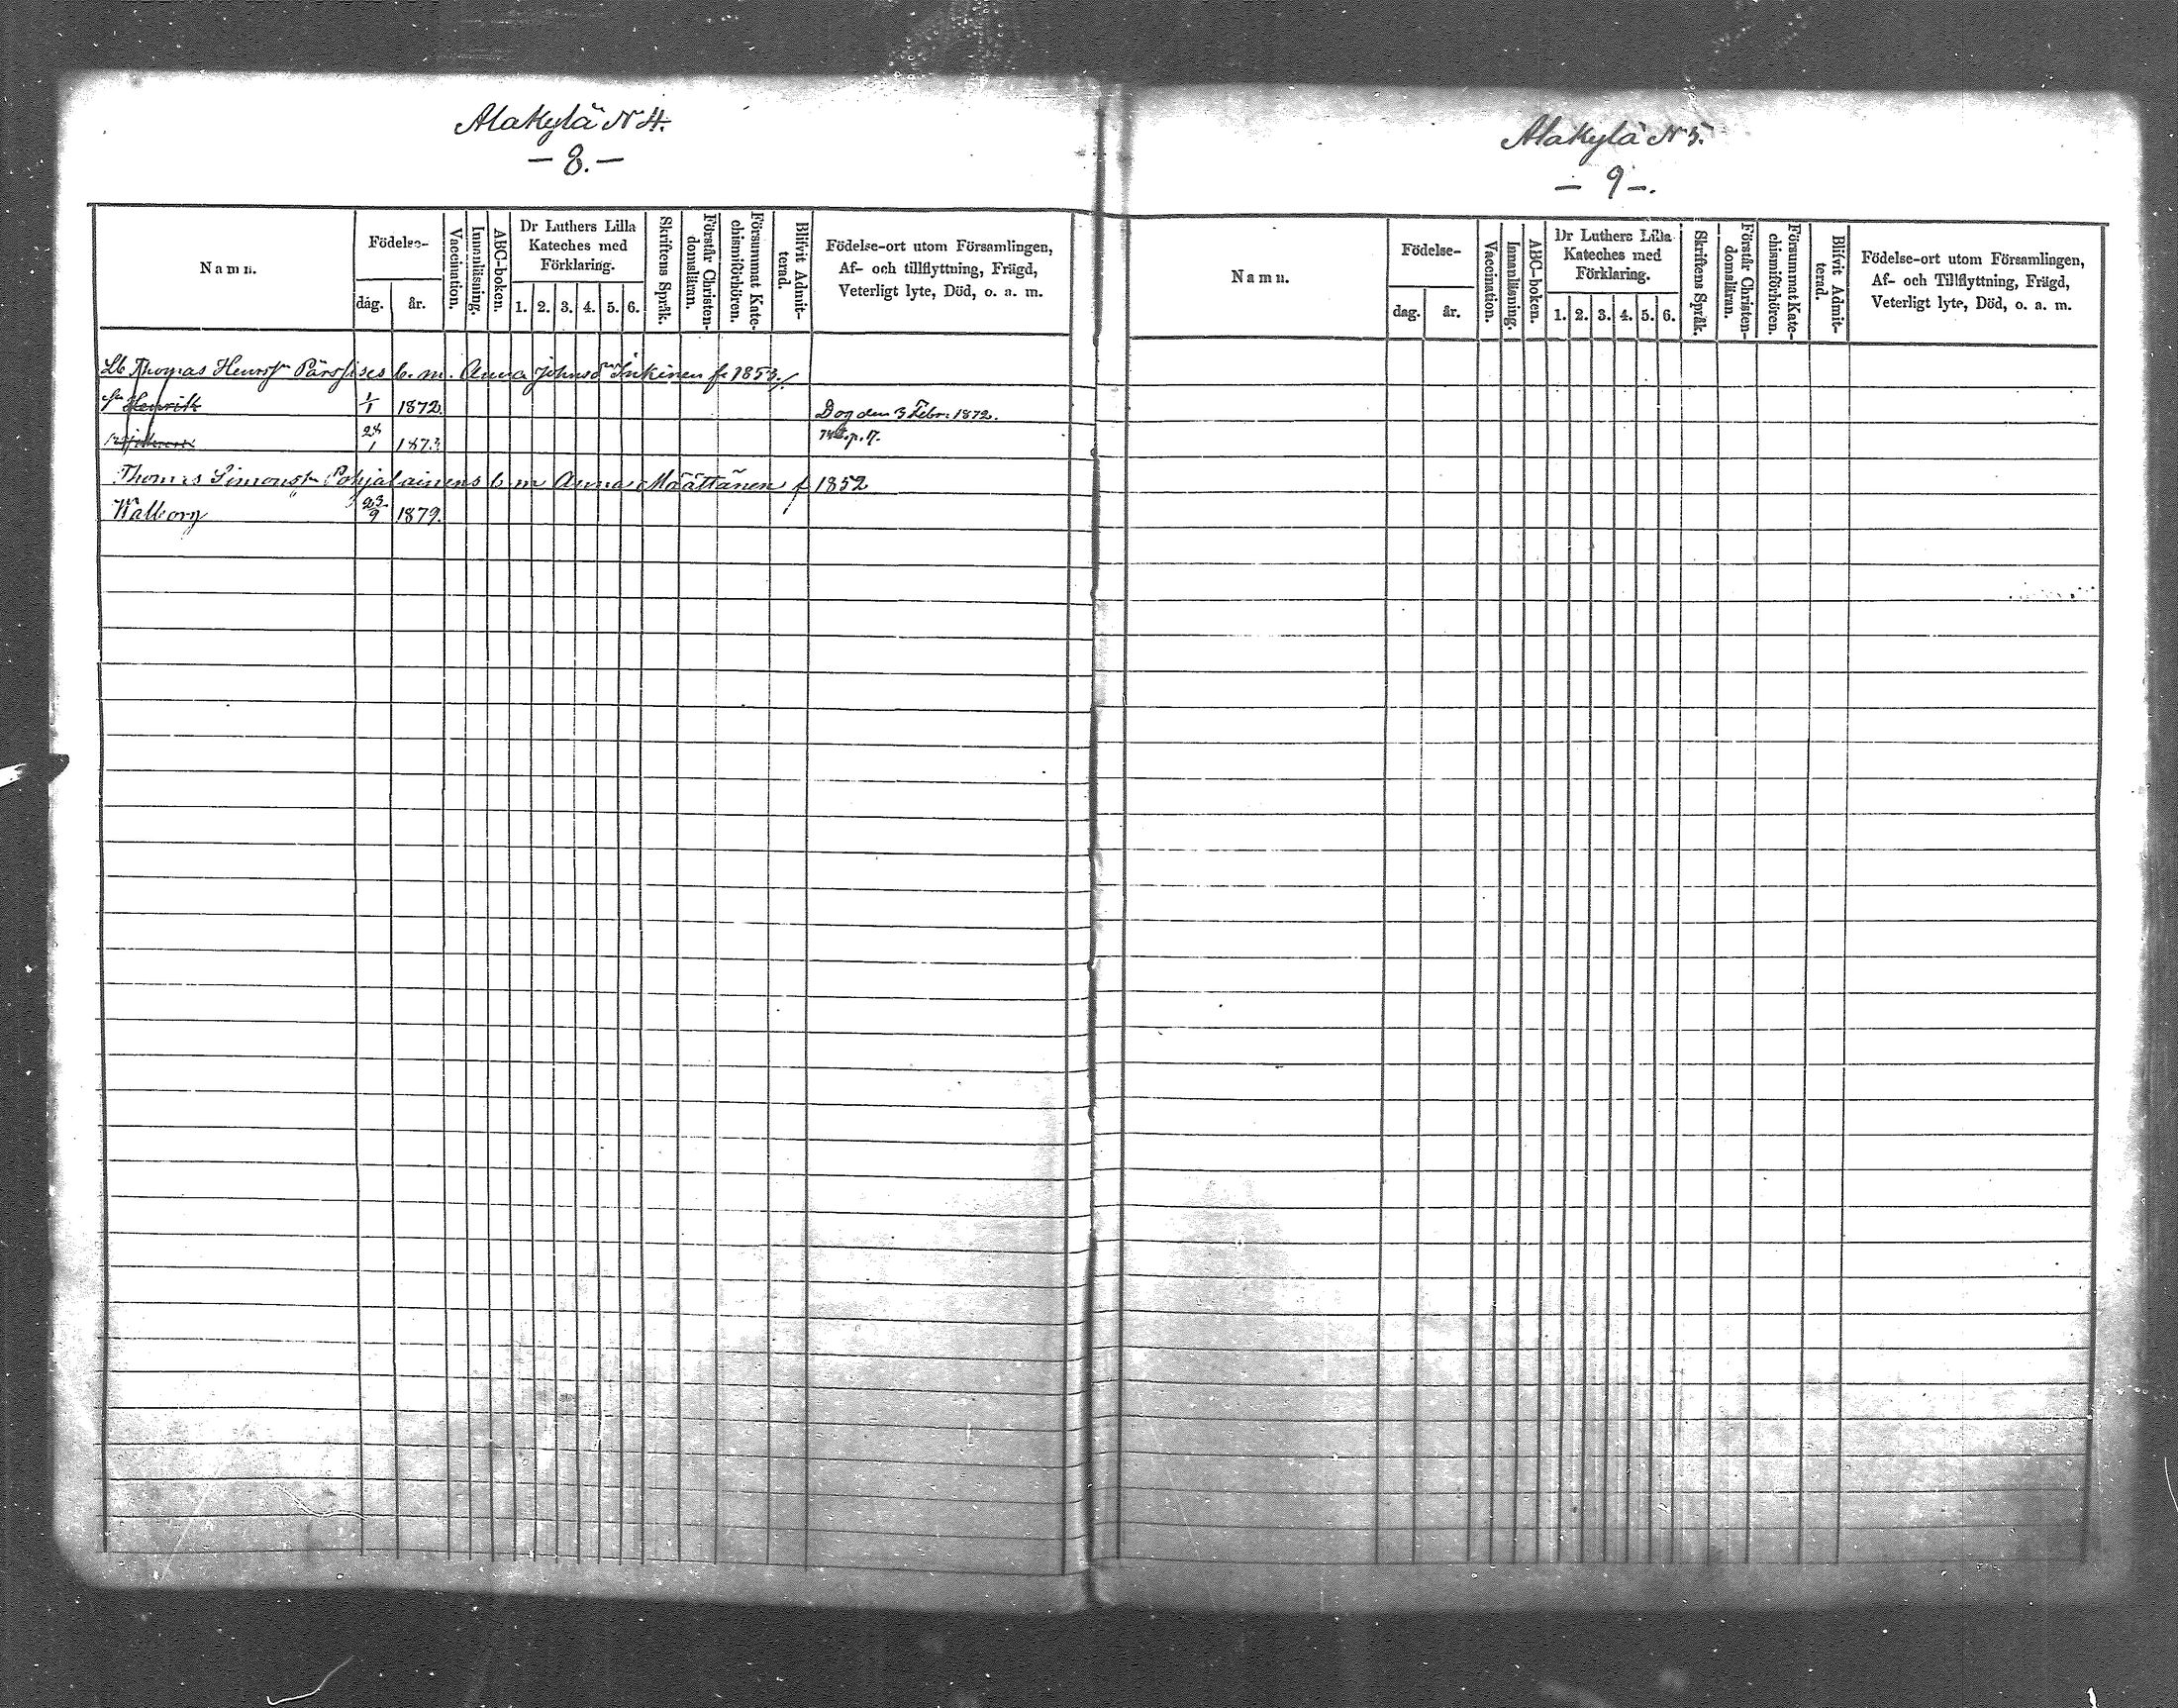 Alakylä N 4.
– 8. –
Namn.
Födelse-
dag.
år.
Vaccination.
Innanläsning.
ABC-boken.
Dr Luthers Lilla
Kateches med
Förklaring.
1. 2. 3. 4. 5. 6.
Skriftens Språk.
Förstår Christen-
domsläran.
Försummat Kate-
chismiförhören.
Blifvit Admit-
terad.
Födelse-ort utom Församlingen,
Af- och tillflyttning, Frägd,
Veterligt lyte, Död, o. a. m.
Thomas Henrs Pärssises b. m. Anna Johnsdr Inkinen f. 1853.
Henrik 1/1 1872 Dog den 3 Febr. 1872.
28/1 1873 p. 17.
Thomas Simonss Pohjalainens b m Anna Määttänen f 1852
Walborg 23/9 1879.
Alakylä N 5.
– 9 –.
Namn.
Födelse-
dag.
år.
Vaccination.
Innanläsning.
ABC-boken.
Dr Luthers Lilla
Kateches med
Förklaring.
1. 2. 3. 4. 5. 6.
Skriftens Språk.
Förstår Christen-
domsläran.
Försummat Kate-
chismiförhören.
Blifvit Admit-
terad.
Födelse-ort utom Församlingen,
Af- och Tillflyttning, Frägd,
Veterligt lyte, Död, o. a. m.